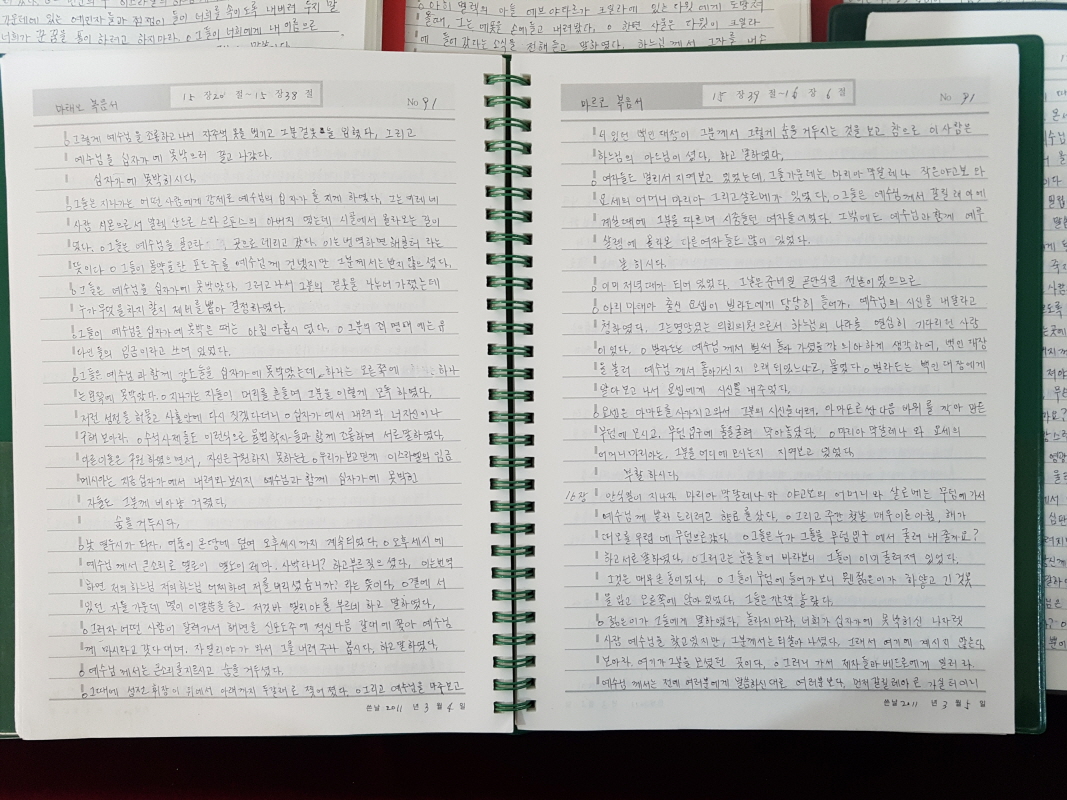 마태오 복음서 15 장 20 절 - 15 장 38 절 No 91
그렇게 예수님을 조롱하고 나서 자주색 옷을 벗기고 그분 겉옷을 입혔다, 그리고
예수님을 십자가에 못박으러 끌고 나갔다.
십자가에 못박히시다.
그들은 지나가는 어떤 사람에게 강제로 예수님의 십자가를 지게 하였다, 그는 키레네
사람 시몬으로서 알렉산드로스와 루포스의 아버지였는데 시골에서 올라오는 길이
었다. 그들은 예수님을 골고타 곳으로 데리고 갔다. 이는 번역하면 해골터 라는
뜻이다 그들이 몰약을 탄 포도주를 예수님께 건넸지만 그분께서는 받지 않으셨다,
그들은 예수님을 십자가에 못박았다. 그러고 나서 그분의 겉옷을 나누어 가졌는데
누가 무엇을 차지할지 제비를 뽑아 결정하였다.
그들이 예수님을 십자가에 못박은 때는 아침 아홉시였다, 그분의 죄명패에는 유
다인들의 임금이라고 쓰여 있었다.
그들은 예수님과 함께 강도 둘을 십자가에 못박았는데, 하나는 오른쪽에 하나
는 왼쪽에 못박았다. 지나가는 자들이 머리를 흔들며 그분을 이렇게 모독하였다.
저런 성전을 허물고 사흘안에 다시 짓겠다더니 십자가에서 내려와 너 자신이나
구해 보아라. 수석사제들도 이런식으로 율법학자들과 함께 조롱하며 서로 말하였다,
다른 이들은 구원하였으면서, 자신은 구원하지 못하는군 우리가 보고 믿게 이스라엘의 임금
메시아는 지금 십자가에서 내려와 보시지 예수님과 함께 십자가에 못박힌
자들도 그분께 비아냥 거렸다.
숨을 거두시다.
낮 열두시가 되자, 어둠이 온 땅에 덮여 오후 세시까지 계속되었다, 오후 세시에
예수님께서 큰소리로 엘로이 엘로이 레마 사박타니? 하고 부르짖으셨다, 이는 번역
하면 저의 하느님 저의 하느님 어찌하여 저를 버리셨습니까? 라는 뜻이다, 곁에 서
있던 자들 가운데 몇이 이 말씀을 듣고 저것봐 엘리야를 부르네 하고 말하였다,
그러자 어떤 사람이 달려가서 해면을 신포도주에 적신 다음 갈대에 꽂아 예수님
께 마시라고 갖다대며, 자 엘리야가 와서 그를 내려 주나 봅시다, 하고 말하였다,
예수님께서는 큰소리를 지르시고 숨을 거두셨다.
그때에 성전 휘장이 위에서 아래까지 두갈래로 찢어졌다 그리고 예수님을 마주보고
쓴날 2011 년 3 월 4 일
마르코 복음서 15 장 39 절 - 16 장 6 절 No 91
서 있던 백인대장이 그분께서 그렇게 숨을 거두시는 것을 보고 참으로 이 사람은
하느님의 아드님이셨다, 하고 말하였다,
여자들도 멀리서 지켜보고 있었는데, 그들 가운데는 마리아 막달레나 작은 야고보와
요세의 어머니 마리아 그리고 살로메가 있었다, 그들은 예수님께서 갈릴래아에
계실때에 그분을 따르며 시중들던 여자들이었다. 그밖에도 예수님과 함께 예루
살렘에 올라온 다른 여자들도 많이 있었다.
묻히시다.
이미 저녁때가 되어 있었다, 그날은 준비일 곧 안식일 전날이었으므로
아리마태아 출신 요셉이 빌라도에게 당당히 들어가, 예수님의 시신을 내달라고
청하였다, 그는 명망있는 의회의원으로서 하느님의 나라를 열심히 기다리던 사람
이었다. 빌라도는 예수님께서 벌써 돌아가셨을까 의아하게 생각하여, 백인대장
을 불러 예수님께서 돌아가신지 오래되었느냐고, 물었다 빌라도는 백인대장에게
알아보고 나서 요셉에게 시신을 내주었다,
요셉은 아마포를 사가지고 와서 그분의 시신을 내려, 아마포로 싼 다음 바위를 깎아 만든
무덤에 모시고, 무덤 입구에 돌을 굴려 막아놓았다, 마리아 막달레나와 요세의
어머니 마리아는, 그분을 어디에 모시는지 지켜보고 있었다,
부활하시다,
16장 안식일이 지나자 마리아 막달레나와 야고보의 어머니와 살로메는 무덤에 가서
예수님께 발라 드리려고 향료를 샀다, 그리고 주간 첫날 매우 이른 아침, 해가
떠오를 무렵에 무덤으로 갔다. 그들은 누가 그 돌을 무덤 입구에서 굴려 내 줄까요?
하고 서로 말하였다, 그러고는 눈을 들어 바라보니 그 돌이 이미 굴려져 있었다,
그것은 매우 큰 돌이었다, 그들이 무덤에 들어가 보니 웬 젊은이가 하얗고 긴 겉옷
을 입고 오른쪽에 앉아 있었다, 그들은 깜짝 놀랐다,
젊은이가 그들에게 말하였다, 놀라지마라, 너희가 십자가에 못박히신 나자렛
사람 예수님을 찾고 있지만, 그분께서는 되살아나셨다, 그래서 여기에 계시지 않는다,
보아라, 여기가 그분을 모셨던 곳이다, 그러니 가서 제자들과 베드로에게 일러라,
예수님께서는 전에 여러분에게 말씀하신대로 여러분보다, 먼저 갈릴래아로 가실터이니
쓴날 2011 년 3 월 5 일